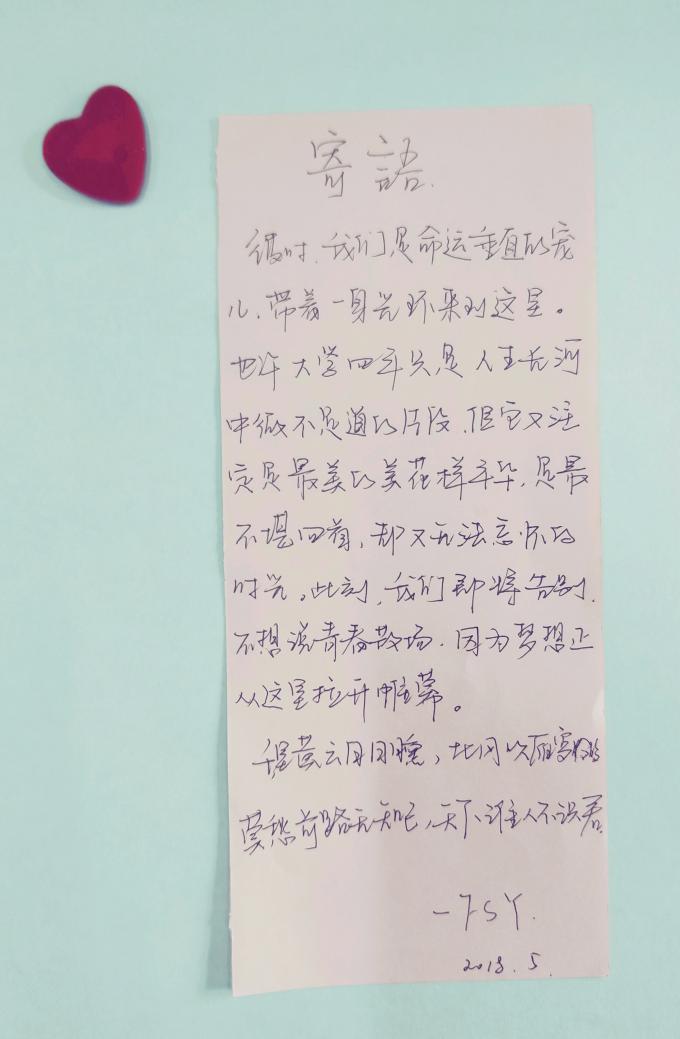 寄語.
彼时,我们是命运垂直的宠
儿,带着一身光环来到这里。
也许大学四年只是人生长河
中微不足道的片段,但它又注
定是最美的美花样年华,是最
不堪回首,却又无法忘怀的
时光。此刻,我们即将告别,
不想说青春散场,因为梦想正
从这里拉开帷幕。
千里黄云白日曛,北风吹雁雪纷纷
莫愁前路无知己,天下谁人不识君
—FSY.
2018.5.